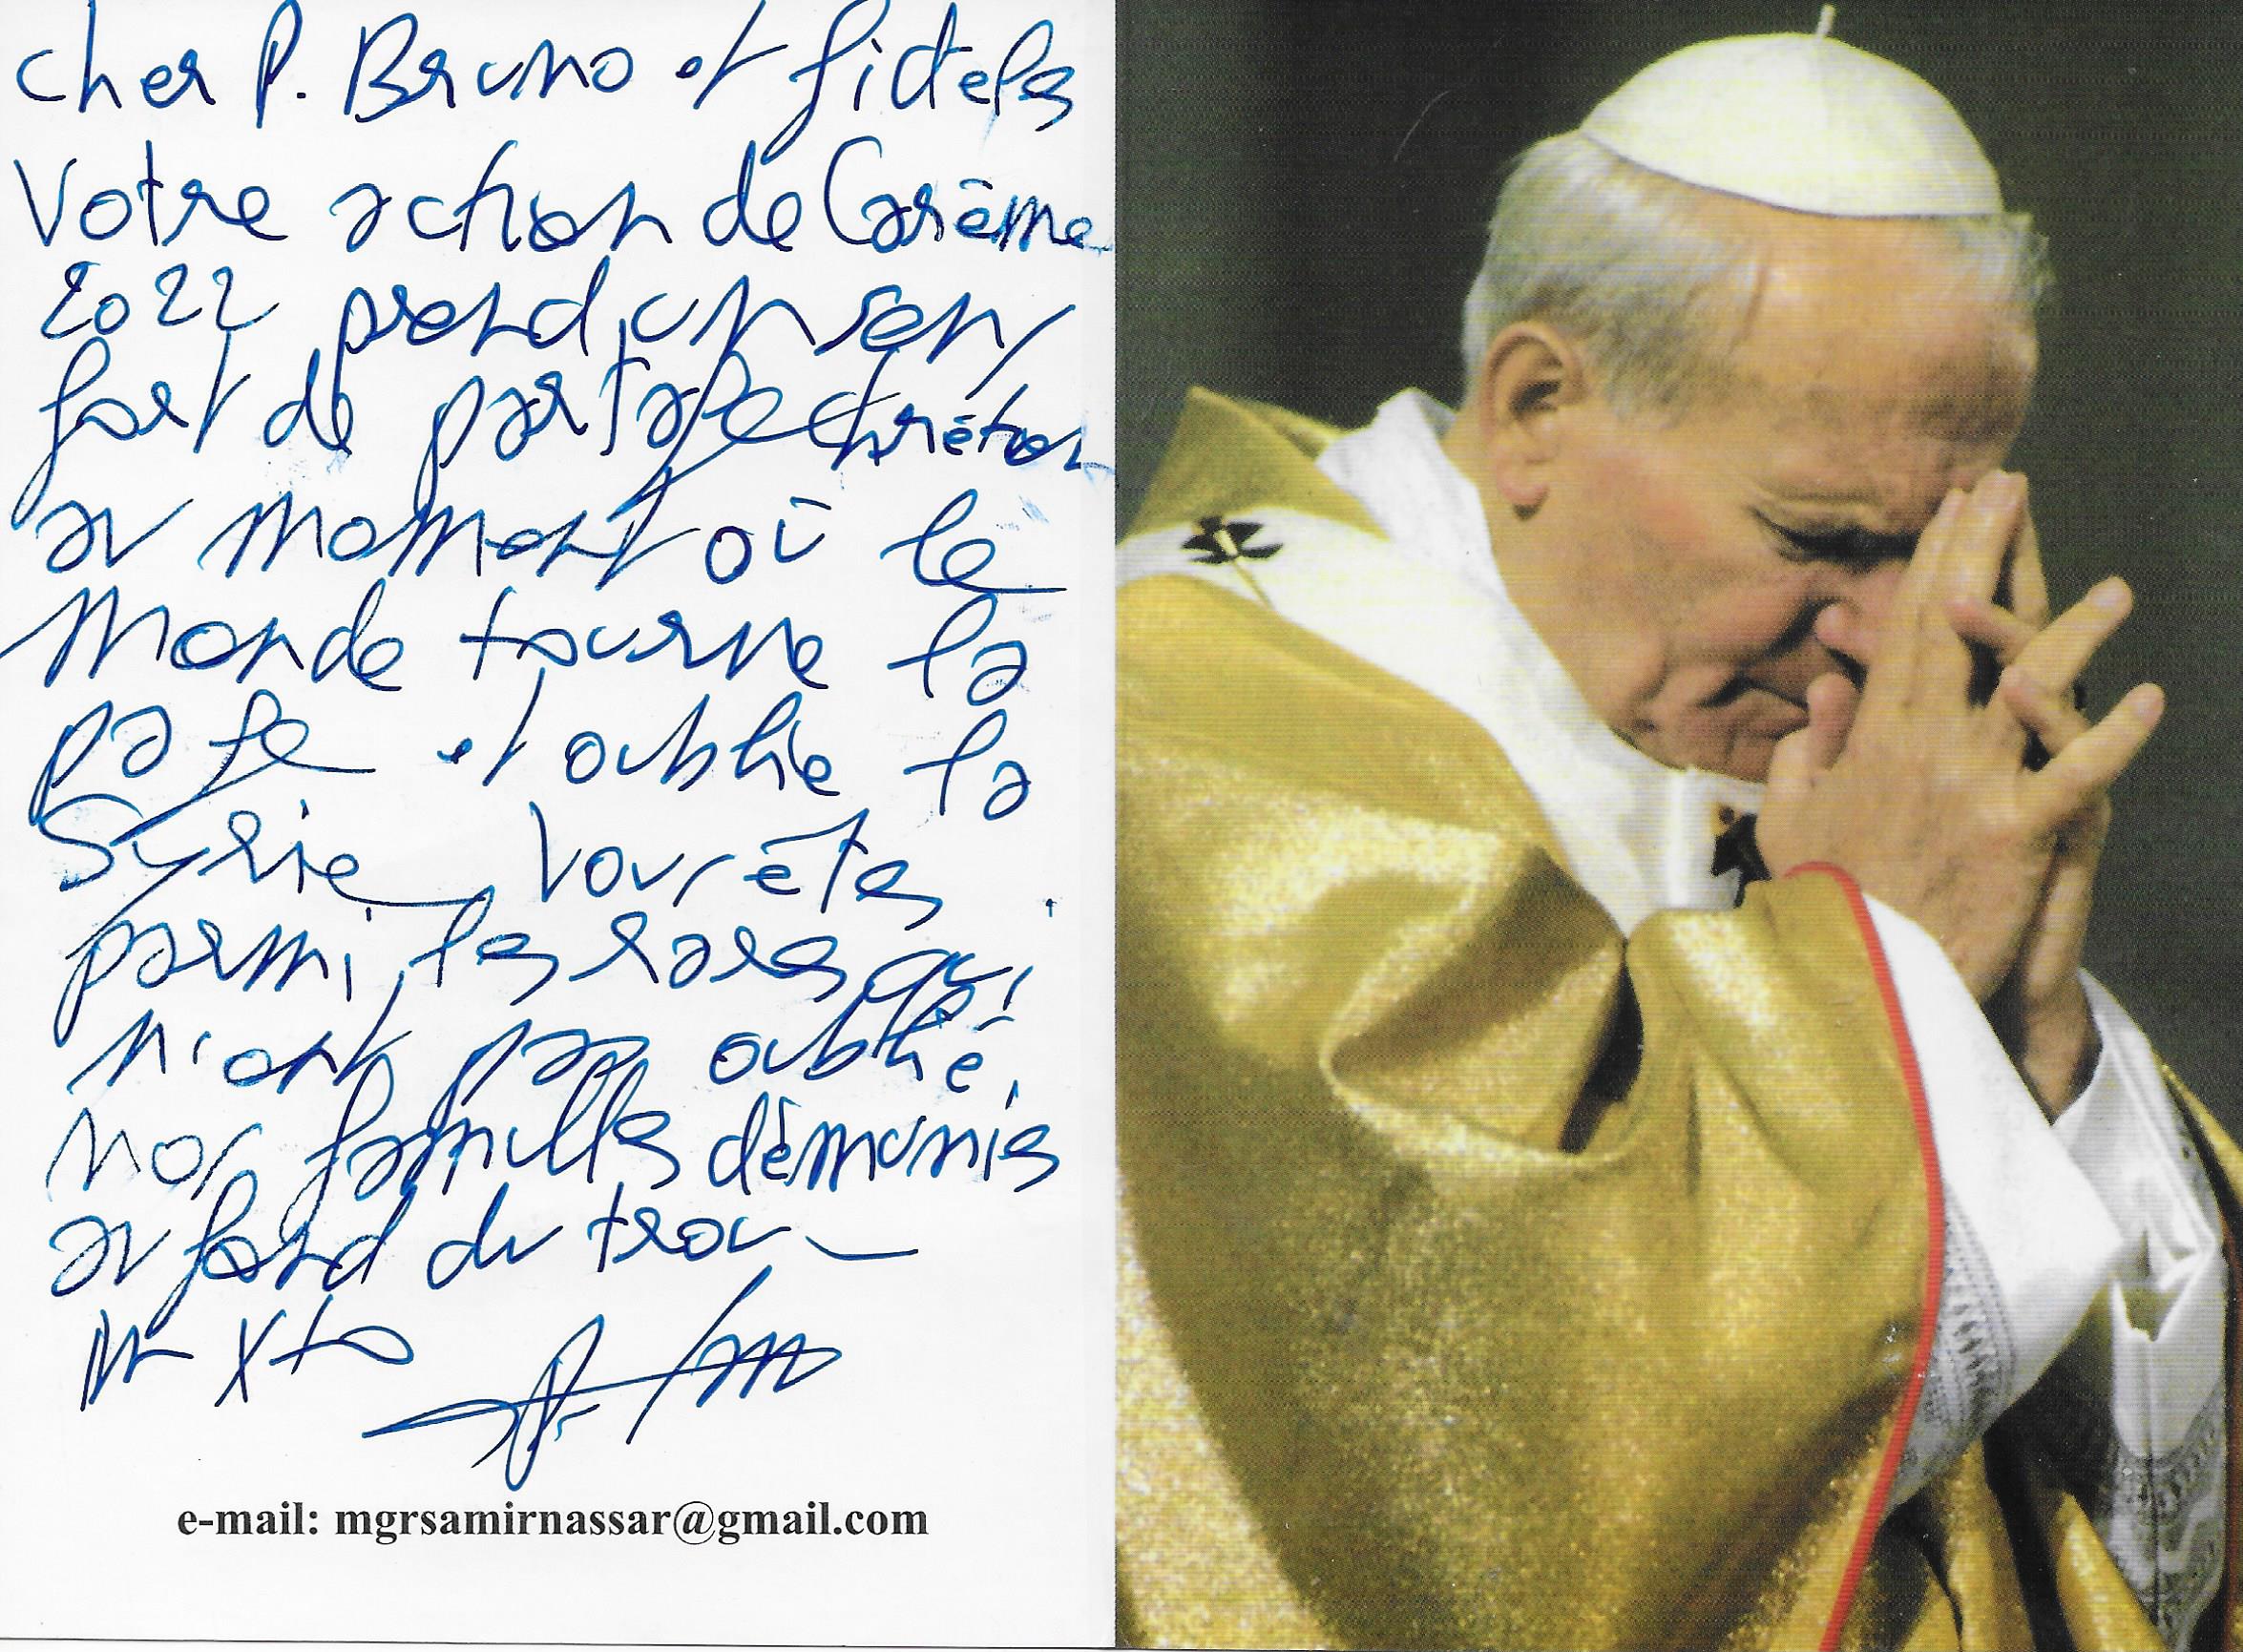 Cher P. Bruno et fidèles
Votre action de Carême
2022 prend un sens
fort de partage chrétien
au moment où le
monde tourne la
page et oublie la
Syrie, vous êtes
parmi les rares qui
n'ont pas oublié
nos familles démunies
au fond du trou
Xto
e-mail: mgrsamirnassar@gmail.com